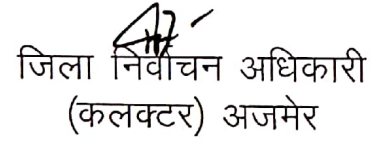 जिला निर्वाचन अधिकारी
(कलक्टर) अजमेर